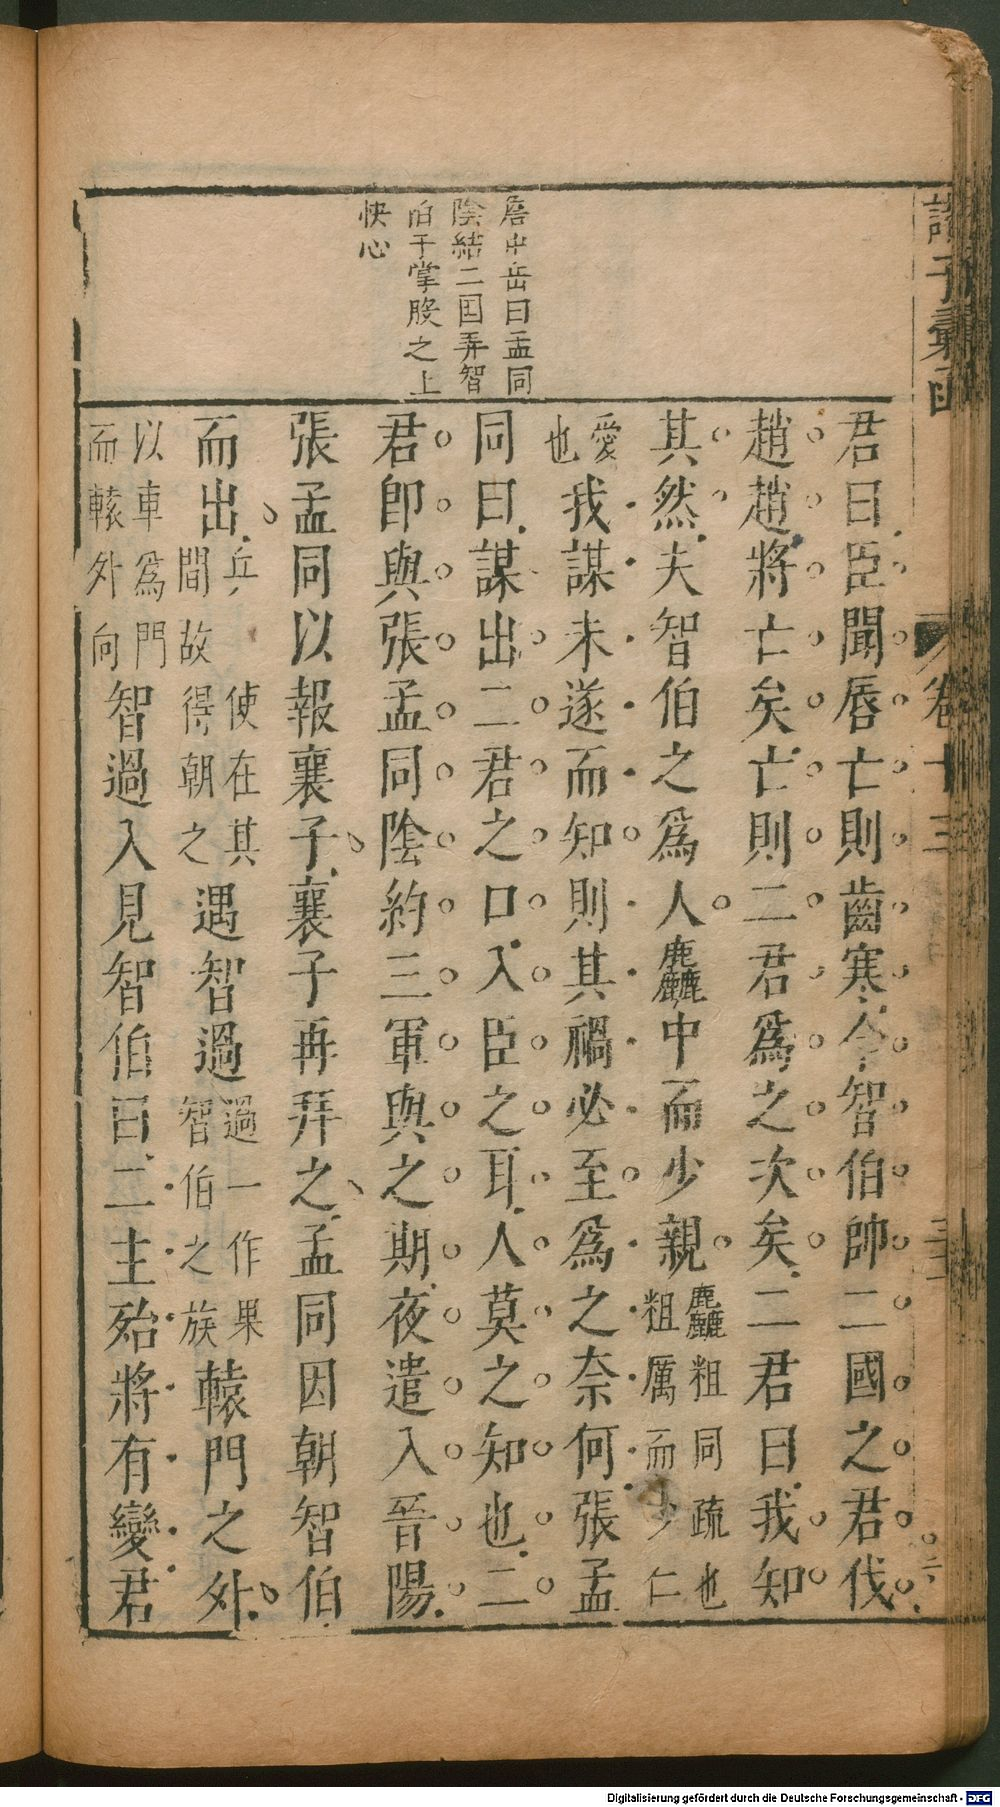 諸子彙函
卷十三
詹中岳曰孟同
陰結二国弄智
伯于掌股之上
快心
君曰臣聞唇亡則齒寒今智伯帥二國之君伐
趙趙將亡矣亡則二君爲之次矣二君曰我知
其然夫智伯之爲人麤中而少親麤粗同疏也粗厲而少仁
愛也我謀未遂而知則其禍必至爲之奈何張孟
同曰謀出二君之口入臣之耳人莫之知也二
君卽與張孟同陰約三軍與之期夜遣入晉陽
張孟同以報襄子襄子再拜之孟同因朝智伯
而出兵使在其間故得朝之遇智過過一作果智伯之族轅門之外
以車爲門而轅外向智過入見智伯曰二主殆將有變君
Digitalisierung gefördert durch die Deutsche Forschungsgemeinschaft - DFG